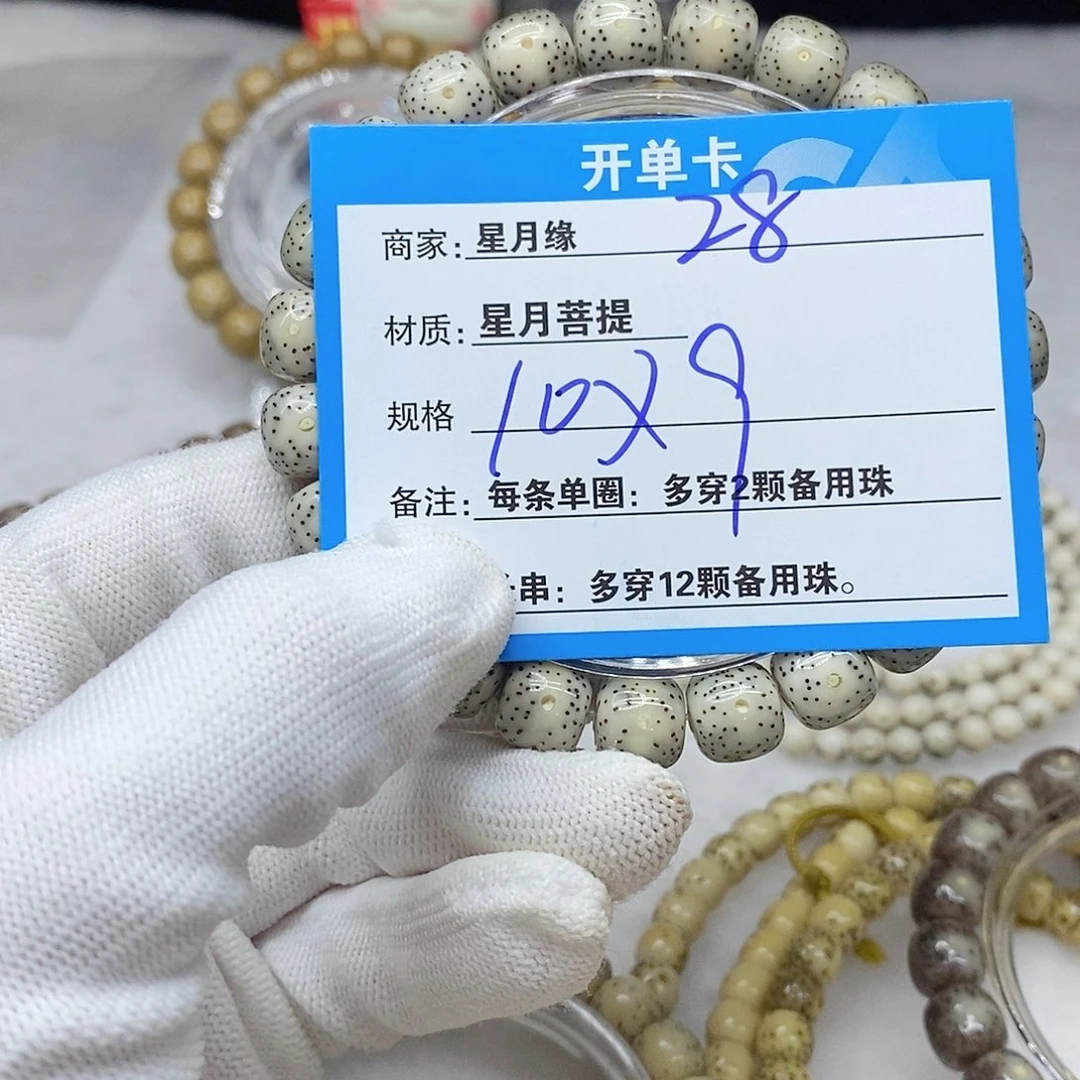 开单卡
商家：星月缘 28
材质：星月菩提
规格 10X9
备注：每条单圈：多穿2颗备用珠
串：多穿12颗备用珠。